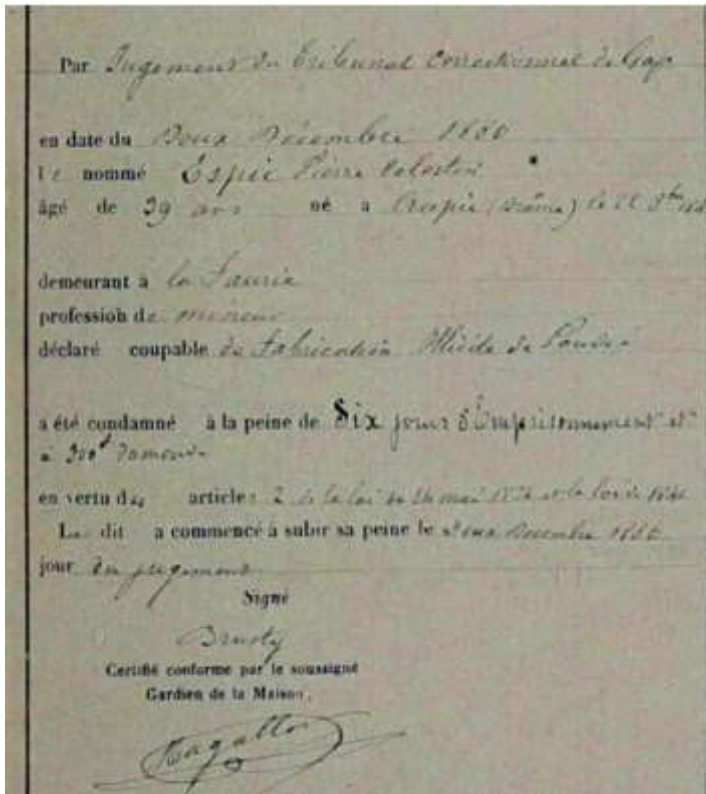 Par Jugement du Tribunal Correctionnel de Gap
en date du Deux Décembre 1880
le nommé Espié Pierre Celestin
âgé de 39 ans né a Crupie (Drôme) le 22 8bre
demeurant à la Faurie
profession de mineur
déclaré coupable de fabrication illicite de Poudre
a été condamné à la peine de Six jours d'Emprisonnement et
à 300f d'amende
en vertu des articles 2 de la loi du 24 mai et la loi de
Le dit a commencé à subir sa peine le deux Decembre 1880
jour du jugement
Signé
Certifié conforme par le soussigné
Gardien de la Maison,